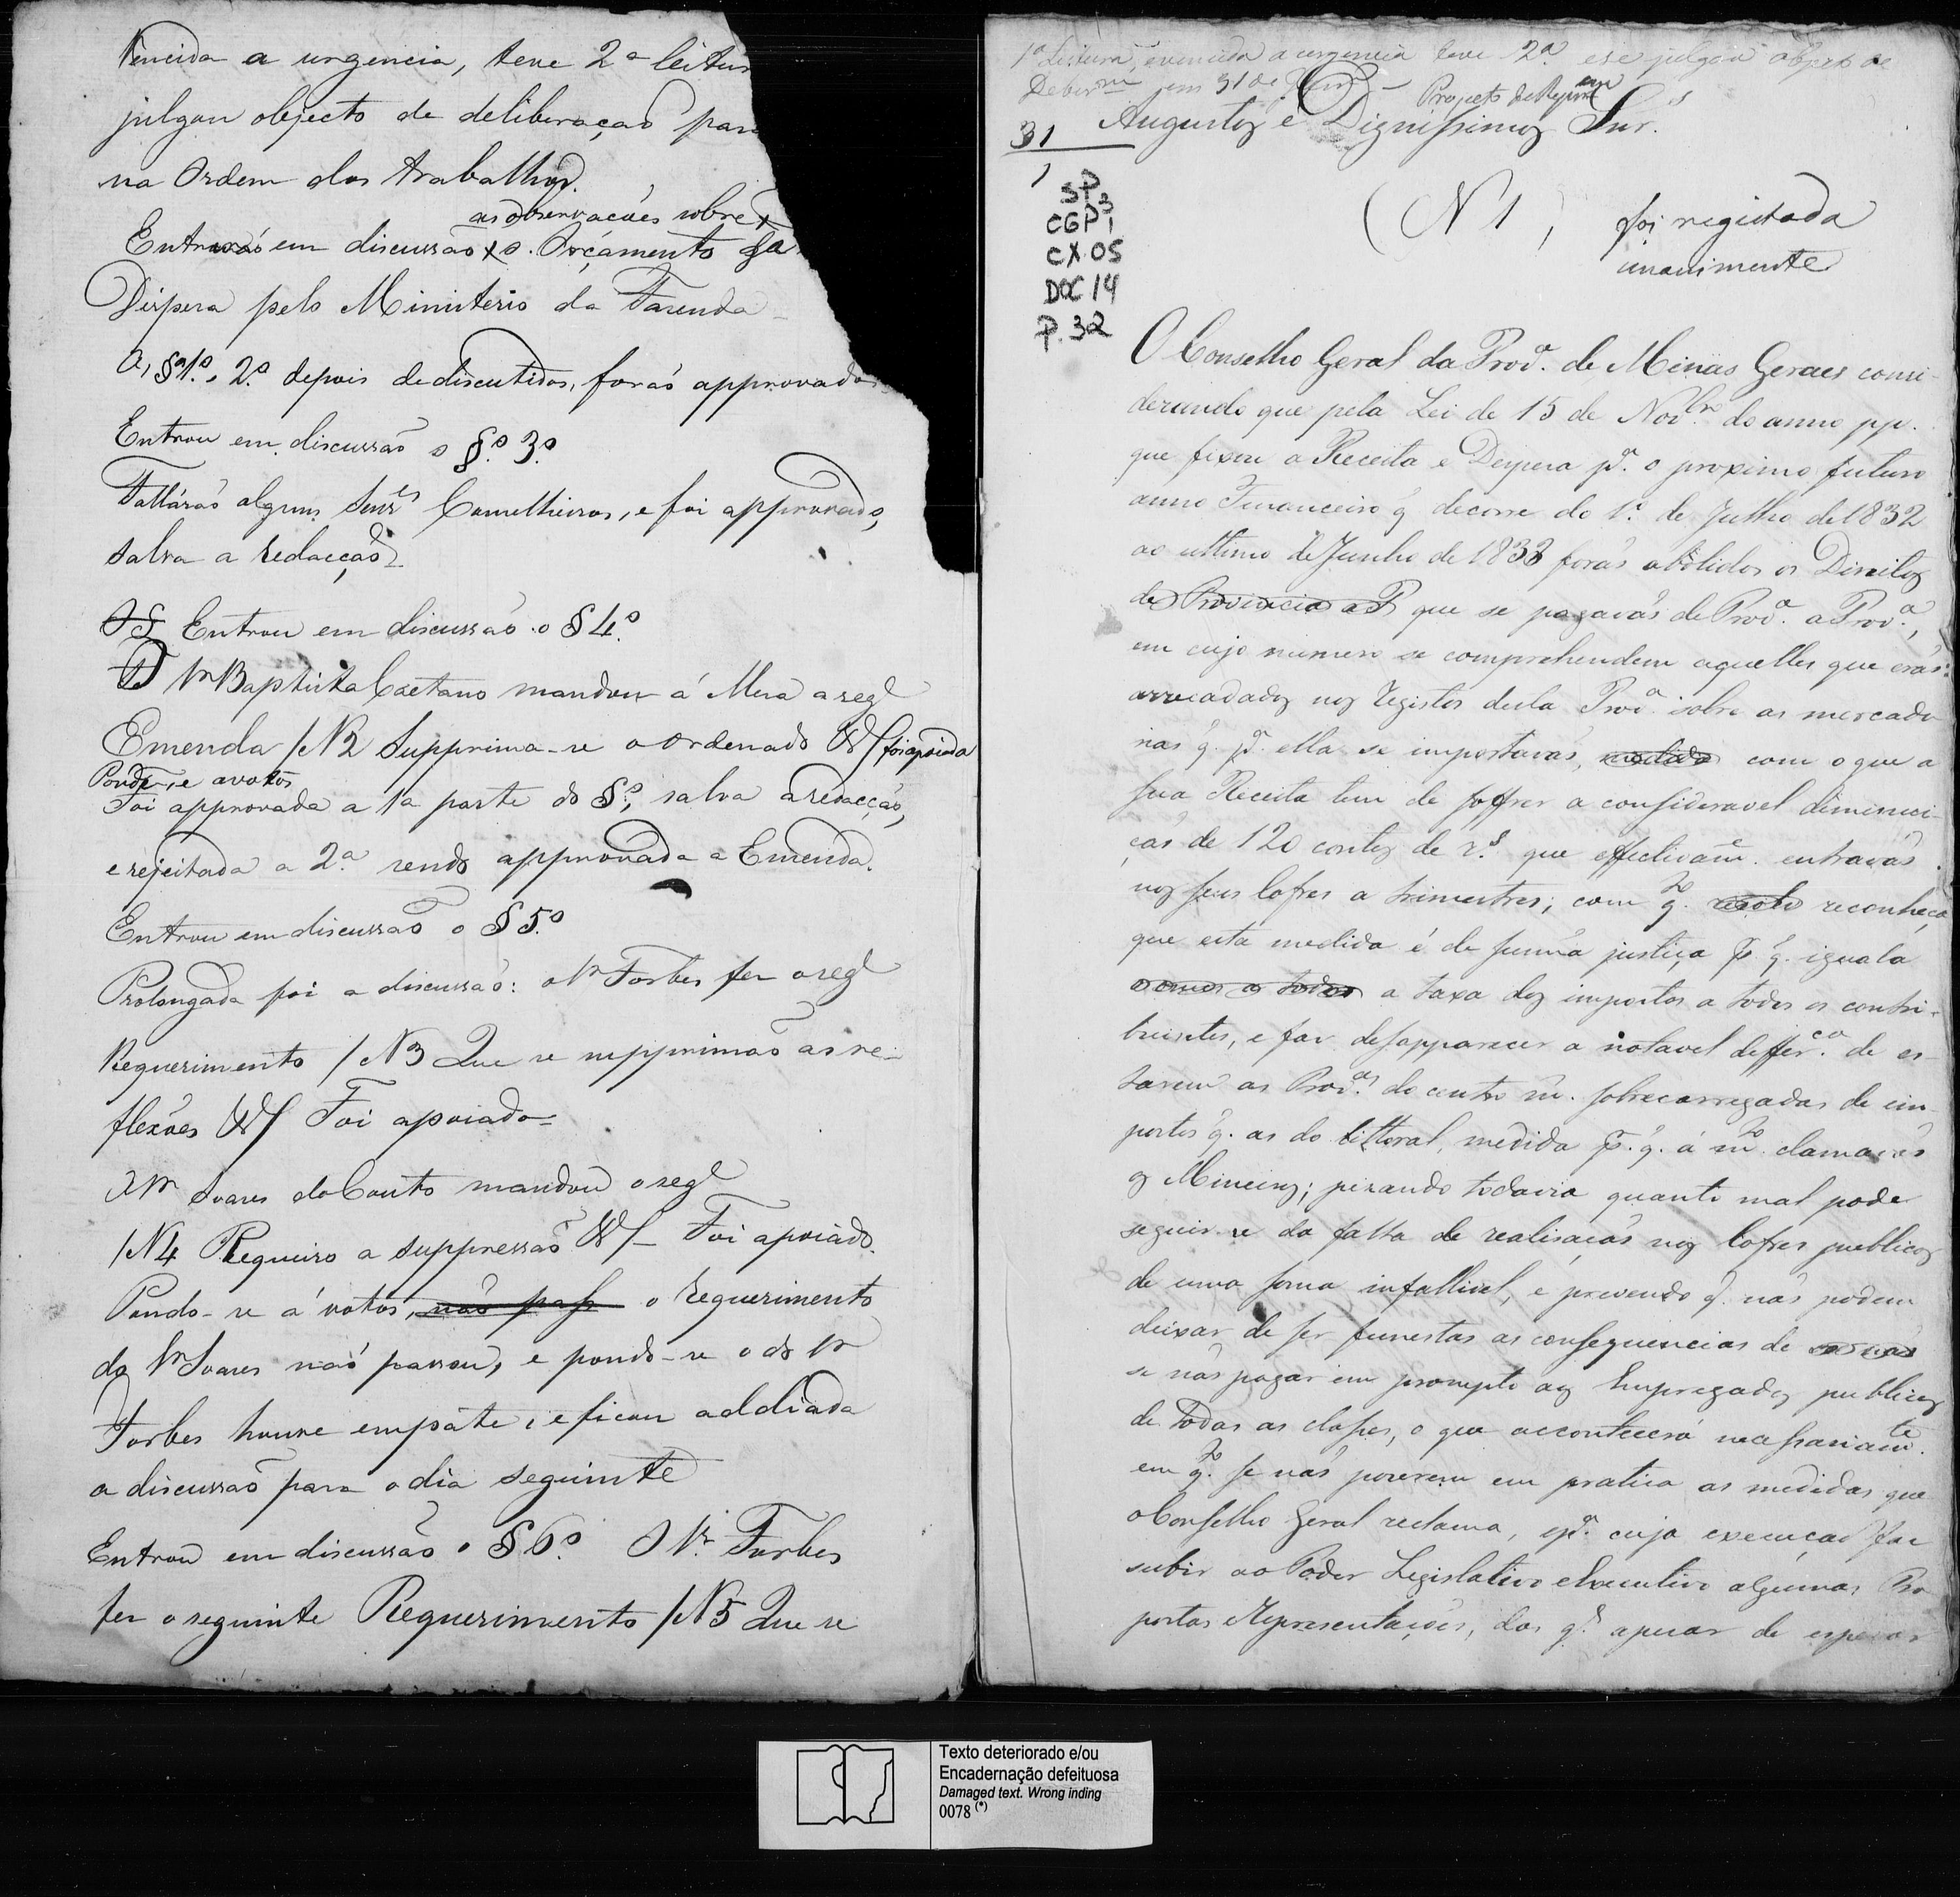 Vencida a urgencia, teve 2ª leitur
julgou objecto de deliberação para
na Ordem dos trabalhos.
as observações sobre
Entrou em discussaõ o Orçamento da
Dispeza pelo Ministerio da Fazenda
Os §§ 1º, 2º depois de discutidos, foraõ approvados
Entrou em discussaõ o §º 3º
Falláraõ alguns Senrˢ Conselheiros, e foi approvado,
salva a redacçaõ
Entrou em discussaõ o § 4º
O Sr Baptista Caetano mandou á Mesa a segᵉ
Emenda /N2 Supprima-se o ordenado &/ foi apoiada
Pondo-se a votos
Foi approvada a 1ª parte do §º, salva a redacçaõ,
e rejeitada a 2ª sendo approvada a Emenda.
Entrou em discussaõ o § 5º
Prolongada foi a discussaõ: o Sr Forbes fez o segᵉ
Requerimento /N3 Que se supprimaõ as re-
flexões &/ Foi apoiado
O Sr Soares do Couto mandou o segᵉ
/N4 Requeiro a suppressaõ &/ - Foi apoiado.
Pondo-se á votos, não pass o requerimento
do Sr Soares naõ passou, e pondo-se o do Sr
Forbes houve empáte, e ficou addiada
a discussaõ para o dia seguinte
Entrou em discussaõ o § 6º O Sr. Forbes
fez o seguinte Requerimento /N5 Que se
1ª Leitura, evencida a urgencia teve 2ª e se julgou objecto de
Deberᵐ em 31 de
Projecto de Represᵃᵐ
Augustos e Dignissimos Snr.ˢ
31
1
SP
CGP 3
1
CX.05
DOC 14
P. 32
(N 1) foi regeitada
unanimente
O Conselho Geral da Provª. de Minas Geraes consi-
derando que pela Lei de 15 de Novᵇʳᵒ do anno pp.
que fixou a Receita e Despeza pª. o proximo futuro
anno Financeiro q̃ decorre do 1º. de Julho de 1832
ao ultimo de Junho de 1833 foraõ abolidos os Direitos
de Provincia a P que se pagavaõ de Provª. a Provª.,
em cujo numero se comprehendem aquelles que eraõ
arrecadados nos Registos desta Provª. sobre as mercado
rias q̃. pª. ella se importavaõ, com o que a
sua Receita tem de soffrer a consideravel diminui-
çaõ de 120 contos de r.ˢ que effectivamᵉ. entravaõ
nos seus Cofres a trimestres; com q.ᵗᵒ reconheça
que esta medida é de summa justiça p. q. iguala
a taxa dos impostos a todos os contri-
buintes, e faz desapparecer a notavel differ.ᶜᵃ de es-
tarem as Prov.ᵃˢ do centro m̃. sobrecarregadas de im-
postos q̃. as do Littoral, medida p. q. á m.ᵗᵒ clamavaõ
os Mineiros; pezando todavia quanto mal pode
seguir-se da falta de realisaçaõ nos Cofres publicos
de uma soma infallivel, e prevendo q̃. naõ podem
deixar de ser funestas as consequencias de
se naõ pagar em prompto aos Empregados publicos
de todas as classes, o que acontecerá necessariamᵗᵉ.
em q.ᵗᵒ se naõ pozerem em pratica as medidas que
o Conselho Geral reclama, e pª. cuja execuçaõ faz
subir ao Poder Legislativo e Executivo algumas Pro
postas e Representações, das q.ˢ apezar de esperar
Texto deteriorado e/ou
Encadernação defeituosa
Damaged text. Wrong inding
0078 (*)